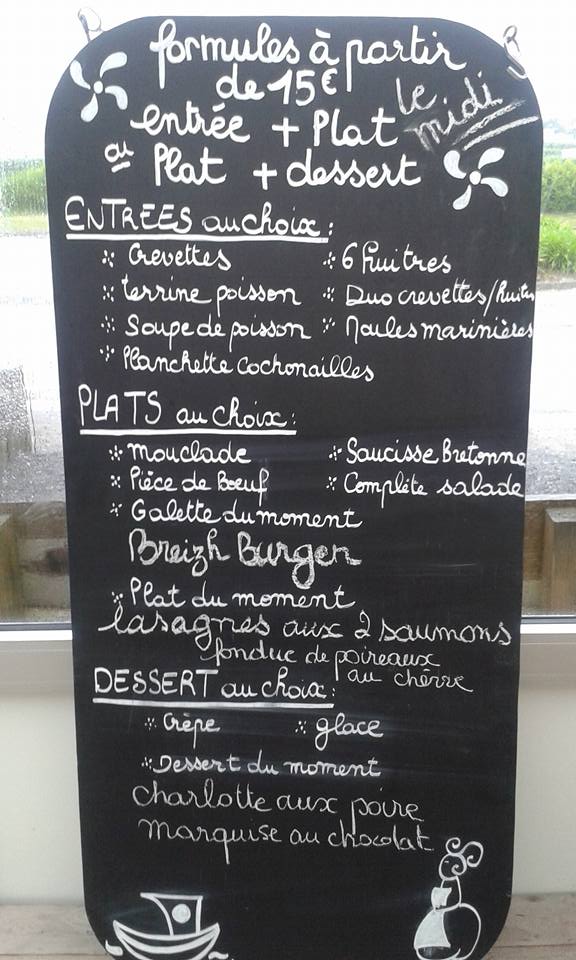 formules à partir
de 15€
le midi
entrée + Plat
ou Plat + dessert
ENTREES au choix :
Crevettes
6 huitres
terrine poisson
Duo crevettes/huitres
Soupe de poisson
Moules marinières
Planchette Cochonailles
PLATS au choix :
mouclade
Saucisse Bretonne
Pièce de Boeuf
Complète salade
Galette du moment
Breizh Burger
Plat du moment
lasagnes aux 2 saumons
fondue de poireaux
au chèvre
DESSERT au choix :
Crêpe
glace
Dessert du moment
charlotte aux poire
marquise au chocolat